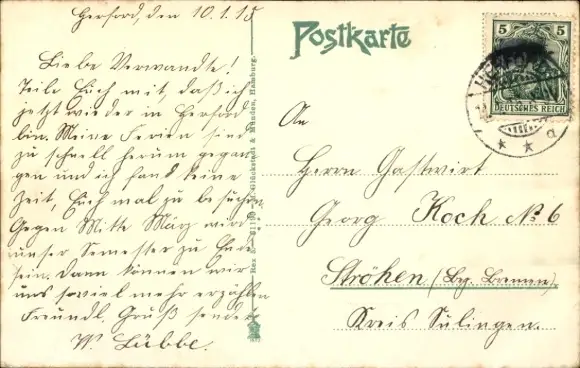 Herford, den 10.1.15
Liebe Verwandte!
Teile Euch mit, daß ich
jetzt wieder in Herford
bin. Meine Ferien sind
zu schnell herum gegan-
gen und ich fand keine
Zeit, Euch mal zu besuchen.
Gegen Mitte März wird
unser Semester zu Ende
sein. Dann können wir
uns soviel mehr erzählen
Freundl. Gruß sendet
W. Lübbe.
Glückstadt & Münden, Hamburg.
Postkarte
5 5
DEUTSCHES REICH
An
Herrn Gastwirt
Georg Koch № 6
Ströhen (Bez. Bremen).
Kreis Sulingen.